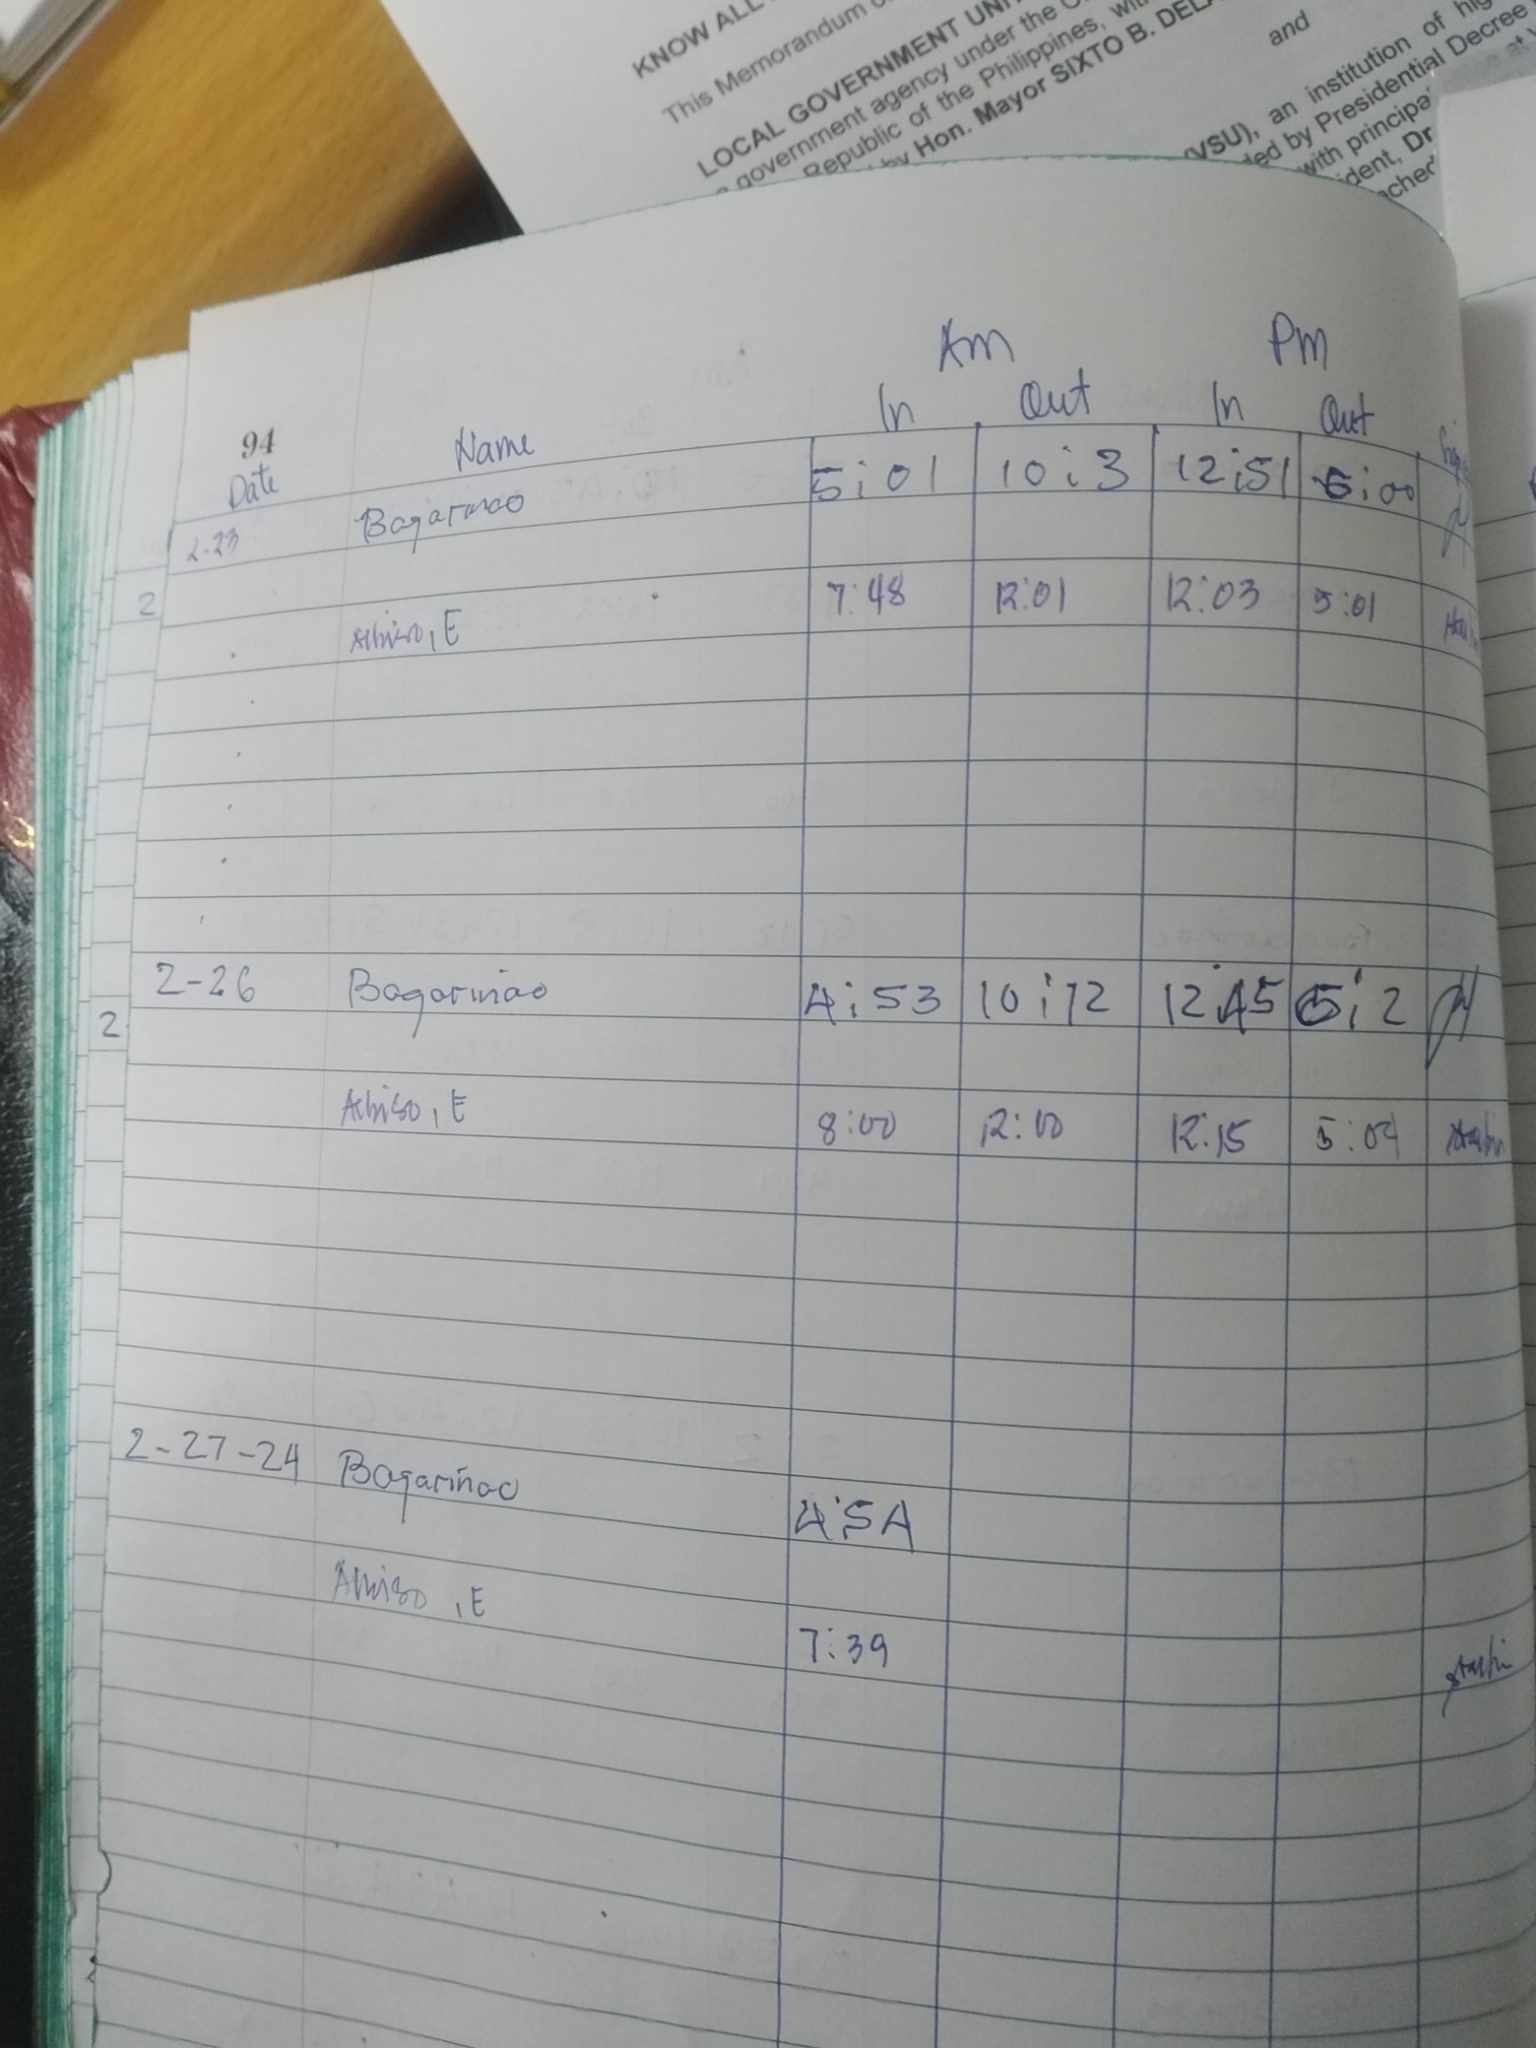 KNOW ALL
This Memorandum o
LOCAL GOVERNMENT UNI
government agency under the
Republic of the Philippines, wi
by Hon. Mayor SIXTO B. DEL
and
(VSU), an institution of hig
ded by Presidential Decree
with principa
ident, Dr
Am Pm
In Out In Out
94
Date Name
2-23 Bagarinao 5:01 10:3 12:51 5:00
2
E 7:48 12:01 12:03 5:01
2-26 Bagarinao 4:53 10:12 12:45 5:2
2
Albiso, E 8:00 12:00 12:15 5:04
2-27-24 Bagariñao 4:54
Albiso, E 7:39